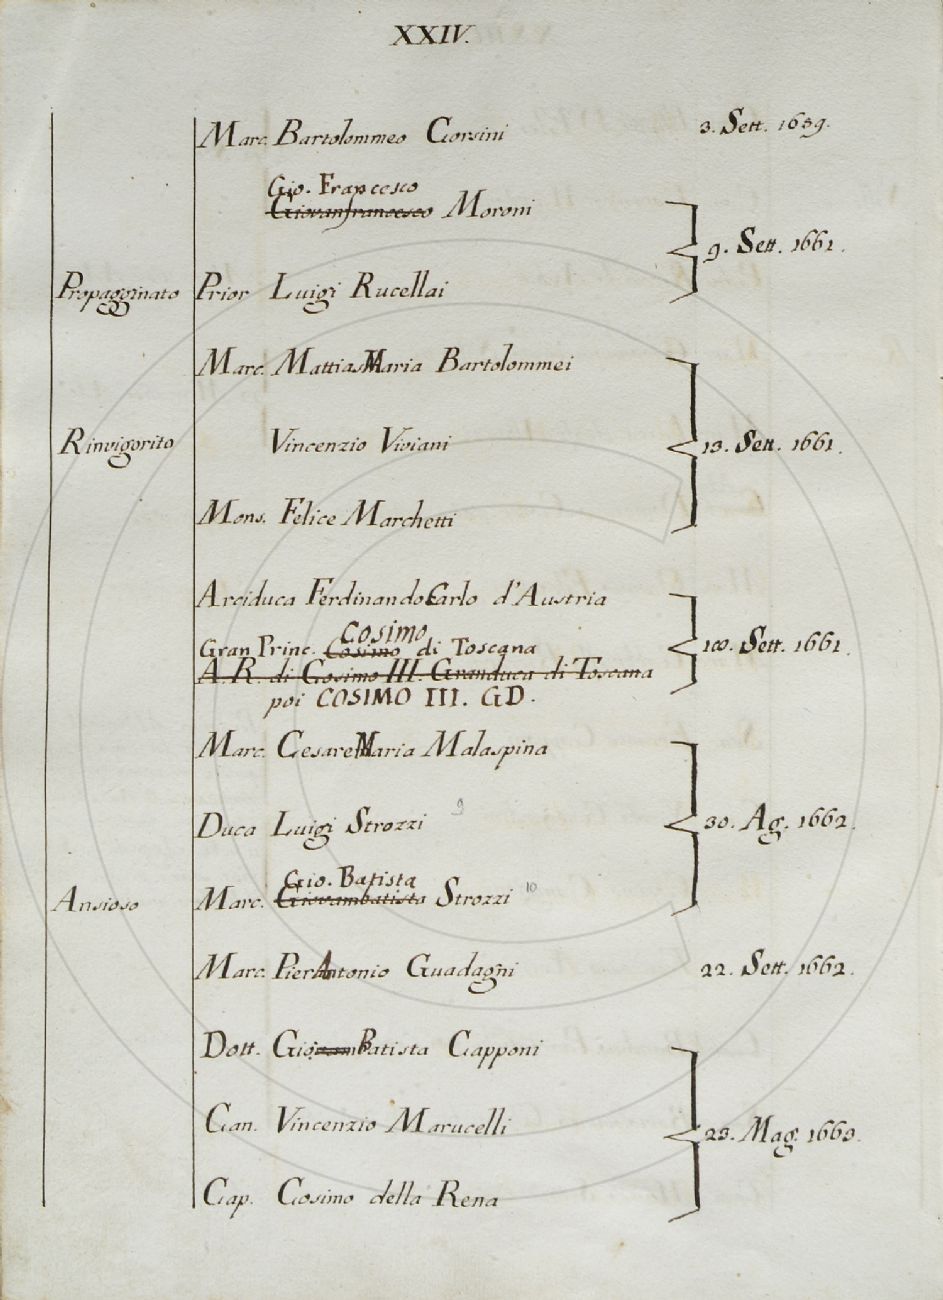 XXIV.
Marc. Bartolommeo Corsini 3. Sett. 1659.
Gio. Francesco
Giovanfrancesco Moroni
9. Sett. 1661.
Propagginato Prior Luigi Rucellai
Marc. Mattias Maria Bartolommei
Rinvigorito Vincenzio Viviani 13. Sett. 1661.
Mons. Felice Marchetti
Arciduca Ferdinando Carlo d'Austria
COSIMO
Gran Princ. Cosimo di Toscana Sett. 1661.
A.R. di Cosimo III. Granduca di Toscana
poi COSIMO III. GD.
Marc. Cesare Maria Malaspina
Duca Luigi Strozzi 9 30. Ag. 1662.
Gio. Batista
Ansioso Marc. Giovambatista Strozzi 10
Marc. Pier Antonio Guadagni 22. Sett. 1662.
Dott. Gio. Batista Capponi
Can. Vincenzio Marucelli 23. Mag. 1663.
Cap. Cosimo della Rena